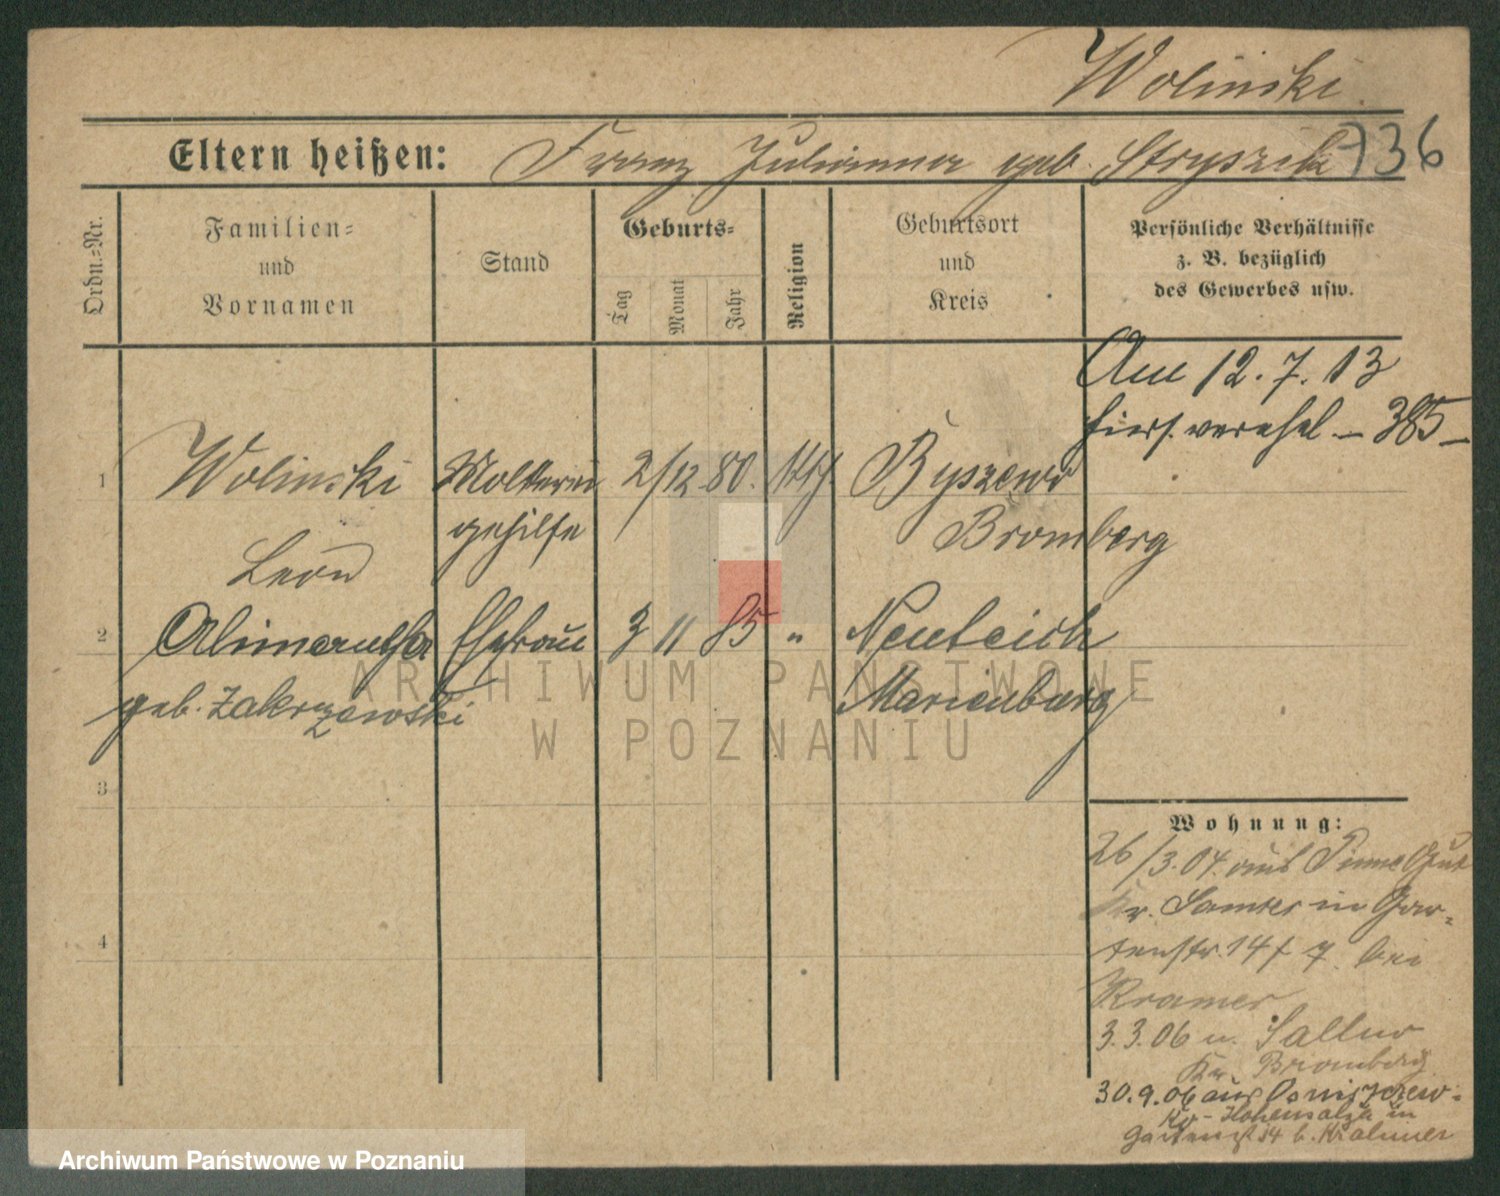 Wolinski
Eltern heißen: Franz Julianna geb. Stryszik 736
Ordn.=Nr.
Familien=
und
Vornamen
Stand
Geburts=
Tag
Monat
Jahr
Religion
Geburtsort
und
Kreis
Persönliche Verhältnisse
z. B. bezüglich
des Gewerbes usw.
Am 12.7.13
hiers. verehel. – 385 –
1 Wolinski Molkerei 2/12 80. kth. Byszewo
gehilfe Bromberg
Leon
2 Ehefrau 3 11 85 " Neuteich
geb. Zakrzewski Marienburg
3
4
Wohnung:
26/3.04. aus Pinne Gut
Kr. Samter in Gar=
tenstr. 14 bei
Kramer
3.3.06 n. Sallno
Kr. Bromberg
30.9.06 aus
Kr- Hohensalza in
Gartenst 14 b. Kralmer
ARCHIWUM PAŃSTWOWE
W POZNANIU
Archiwum Państwowe w Poznaniu